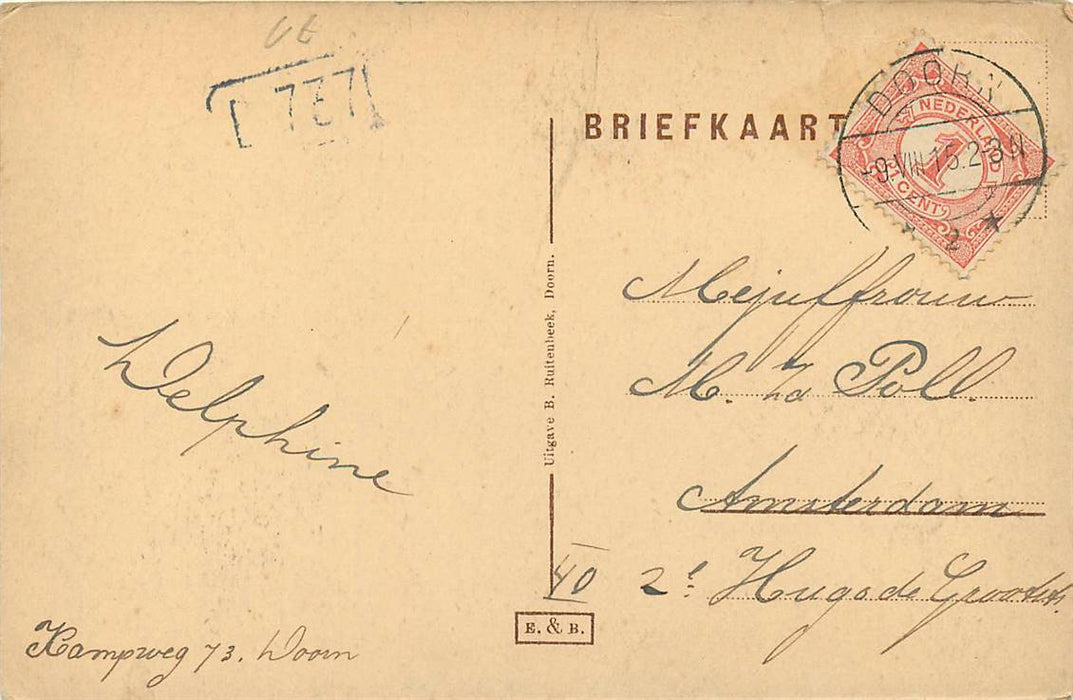 737
BRIEFKAART
DOORN
-9.VIII.15.2-3N
2
NEDERLAND
1
CENT
Mejuffrouw
M. v/d Poll.
Amsterdam
40 2e Hugo de Grootstr.
Delphine
Kampweg 73. Doorn
Uitgave B. Ruitenbeek, Doorn.
E. & B.